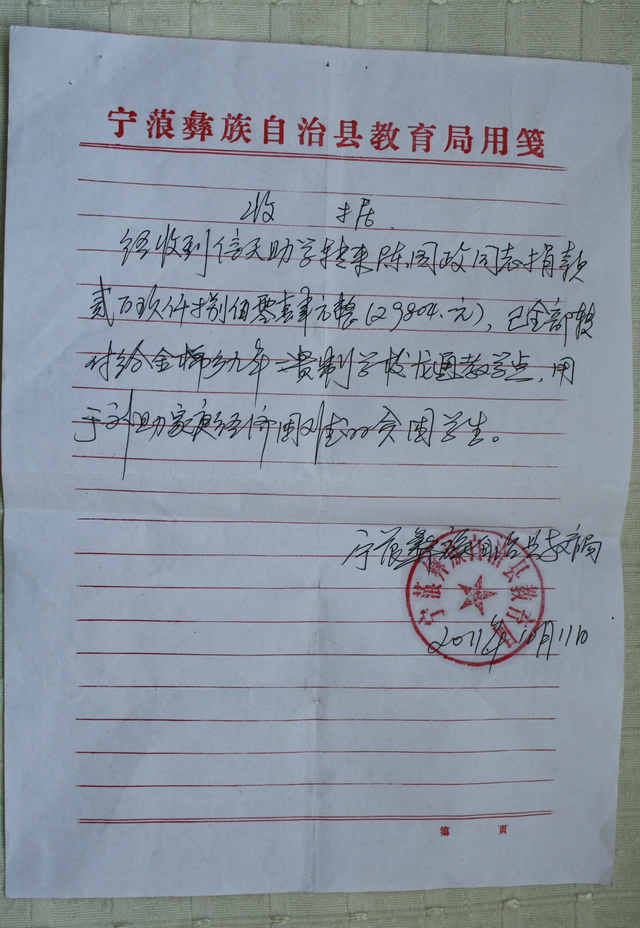 宁蒗彝族自治县教育局用笺
收 据
经收到信天助学转来陈国政同志捐款
贰万玖仟捌佰零肆元整(29804.元),已全部转
付给金棉乡九年一贯制学校龙通教学点,用
于资助家庭经济困难的贫困学生。
宁蒗彝族自治县教育局
宁蒗彝族自治县教育局
2011年10月11日
第 页